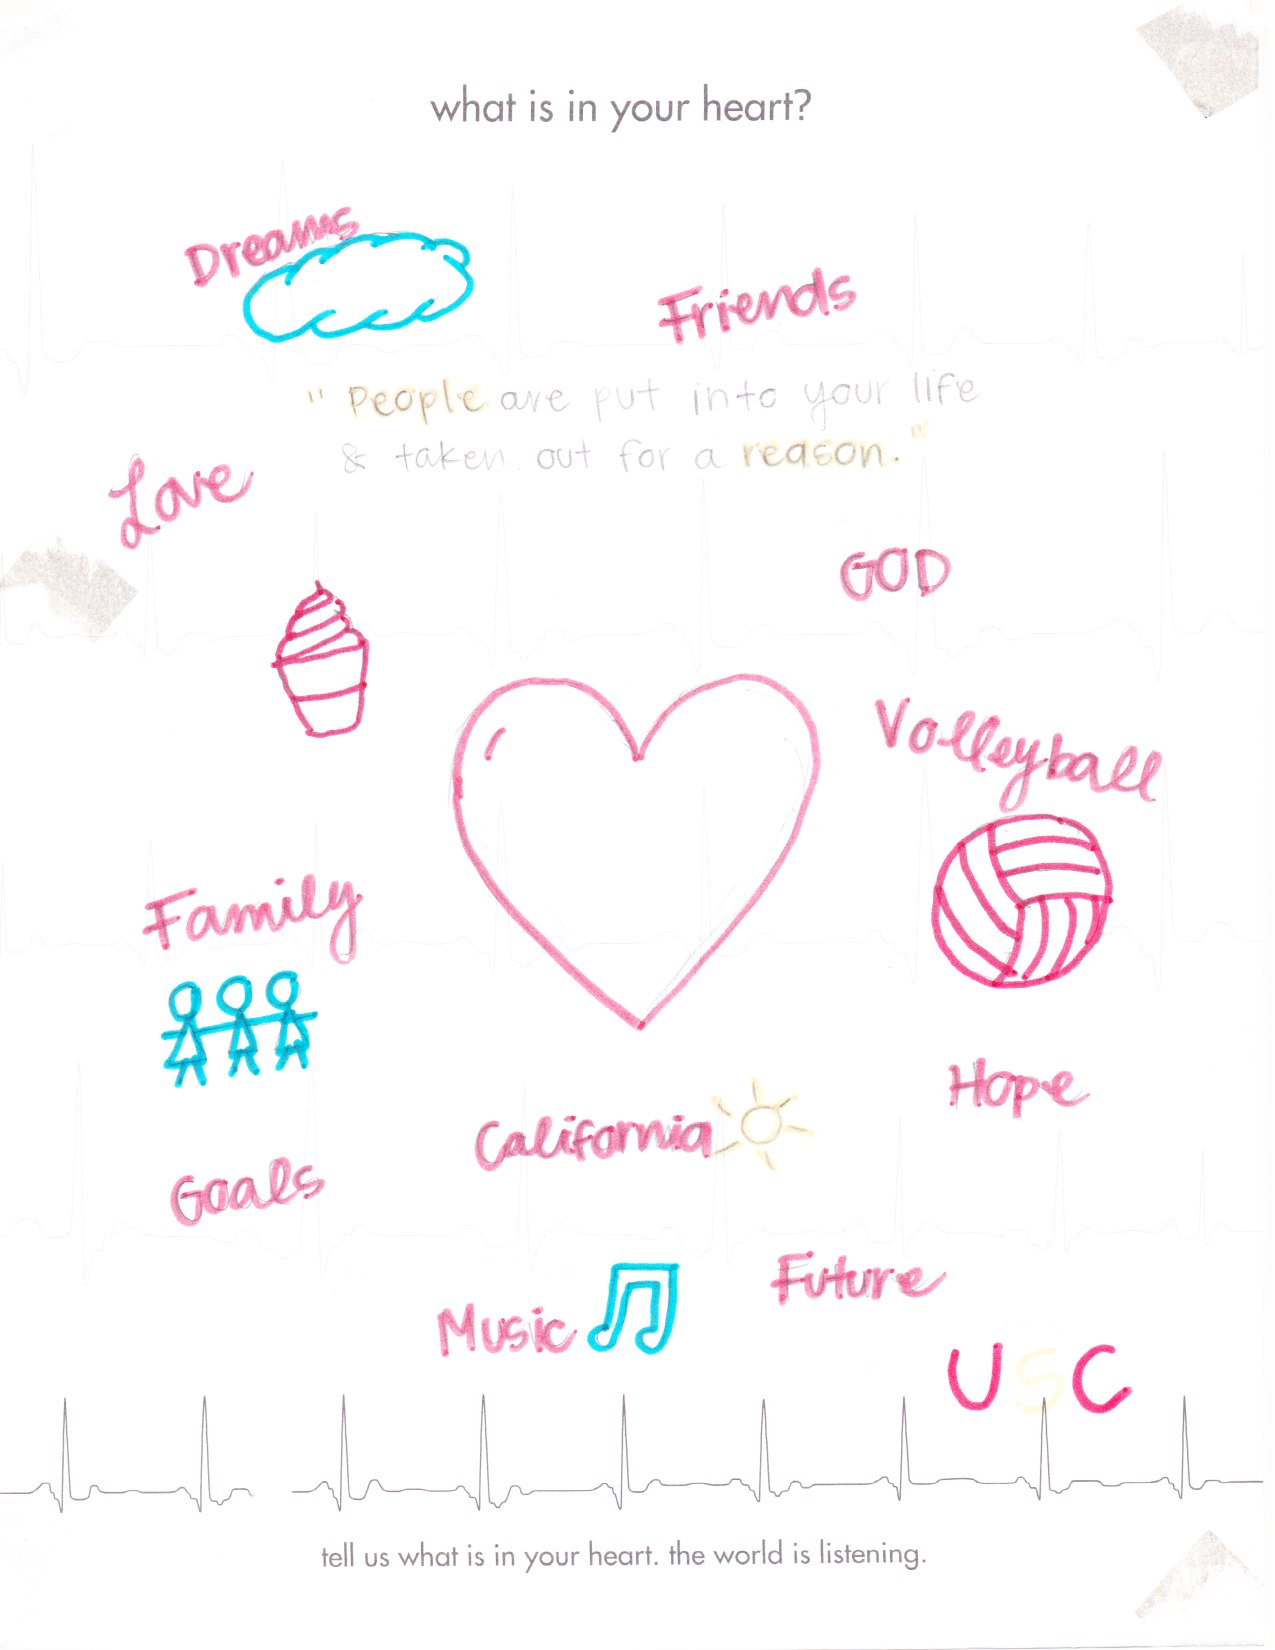 what is in your heart?
Dreams
Friends
" People are put into your life
& taken out for a reason."
Love
GOD
Volleyball
Family
Hope
California
Goals
Future
Music
USC
tell us what is in your heart. the world is listening.